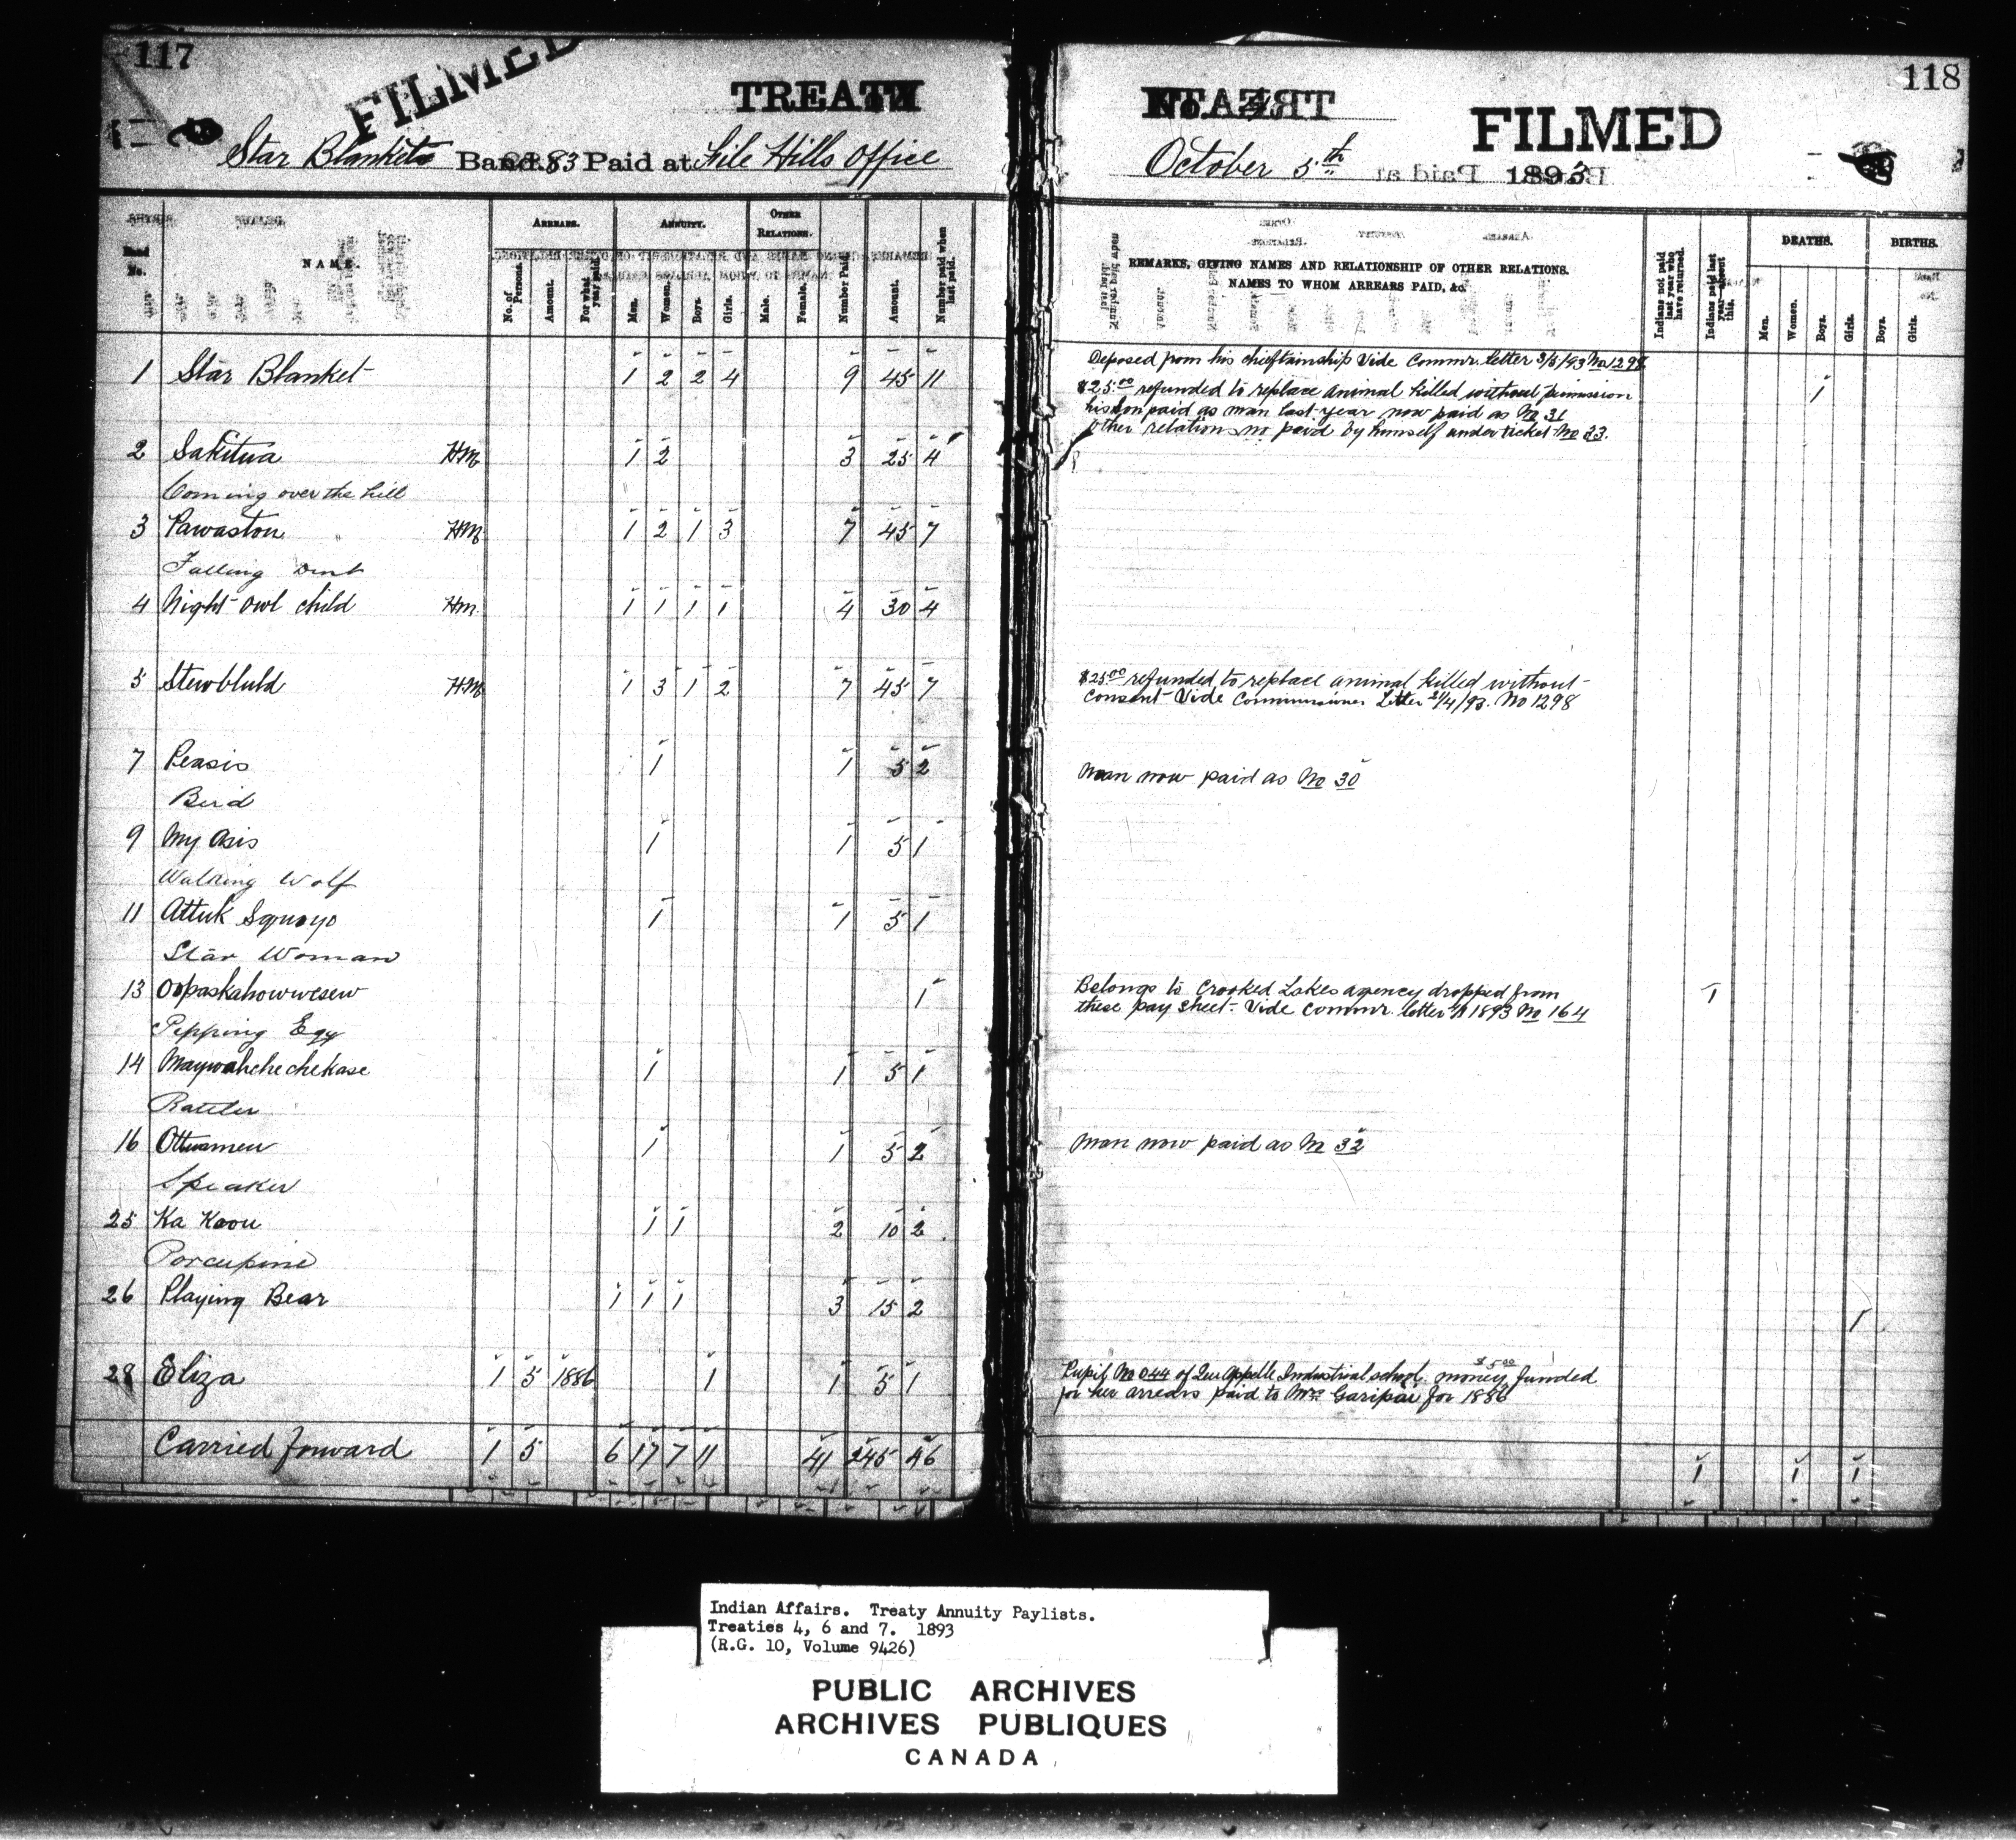 117
FILMED
TREATY
Star Blankets Band No. 83 Paid at File Hills Office
Band No.
NAME.
ARREARS.
No. of Persons.
Amount.
For what year paid.
ANNUITY.
Men.
Women.
Boys.
Girls.
OTHER RELATIONS.
Male.
Female.
Number Paid.
Amount.
Number paid when last paid.
1 Star Blanket 1 2 2 4 9 45 11
2 Sakitua HM 1 2 3 25 4
Coming over the hill
3 Pawaston HM 1 2 1 3 7 45 7
Falling
4 Night Owl child HM 1 1 1 1 4 30 4
5 HM 1 3 1 2 7 45 7
7 Peasis 1 1 5 2
Bird
9 My Asis 1 1 5 1
Walking Wolf
11 Attuk Squayo 1 1 5 1
Star Woman
13 Oopaskahowwesew 1
Pipping Egg
14 Maywahchechekase 1 1 5 1
Rattler
16 Ottwamew 1 1 5 2
Speaker
25 Ka Koou 1 1 2 10 2
Porcupine
26 Playing Bear 1 1 1 3 15 2
28 Eliza 1 5 1886 1 1 5 1
Carried forward 1 5 6 17 7 11 41 245 46
118
TREATY
FILMED
October 5th 1893
REMARKS, GIVING NAMES AND RELATIONSHIP OF OTHER RELATIONS.
NAMES TO WHOM ARREARS PAID, &c.
Indians not paid last year who have returned.
Indians paid last year—absent this.
DEATHS.
Men.
Women.
Boys.
Girls.
BIRTHS.
Boys.
Girls.
Deposed from his chieftainship Vide Commr. letter 3/5/93 No 1298
$25.00 refunded to replace animal killed without permission 1
his son paid as man last year now paid as No 31
other relations paid by himself under ticket No 33.
$25.00 refunded to replace animal killed without
consent Vide Commissioner Letter 21/4/93. No 1298
Man now paid as No 30
Belongs to Crooked Lakes agency dropped from 1
these pay sheet. Vide Commr. letter 1893 No 164
Man now paid as No 32
1
Pupil No 044 of Qu'Appelle Industrial school. money $5.00 funded
for her arrears paid to Mrs Garipai for 1886
1 1 1
Indian Affairs. Treaty Annuity Paylists.
Treaties 4, 6 and 7. 1893
(R.G. 10, Volume 9426)
PUBLIC ARCHIVES
ARCHIVES PUBLIQUES
CANADA